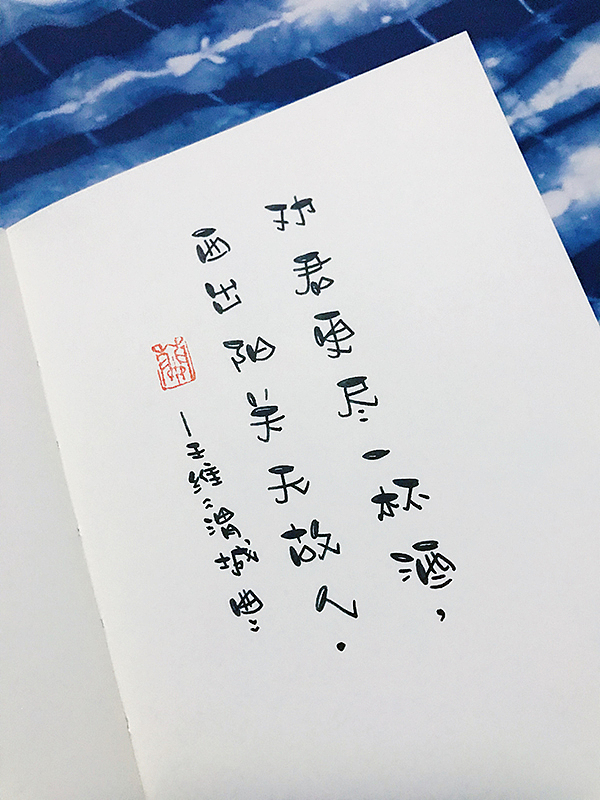 劝君更尽一杯酒，
西出阳关无故人.
—王维《渭城曲》